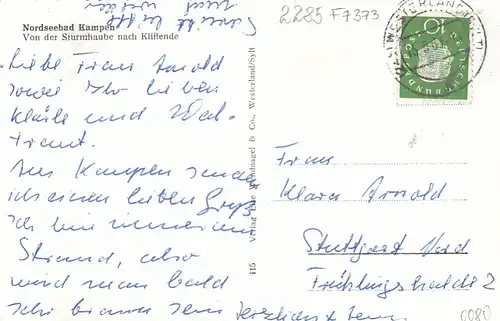 Nordseebad Kampen
Von der Sturmhaube nach Kliffende
2285 F7373
WESTERLAND (SYLT)
10
DEUTSCHE BUNDESPOST
Liebe Frau Arnold
sowie Ihr lieben
Kläxle und Wal-
traut.
Aus Kampen sende
ich einen lieben Gruß
Ich bin immer am
Strand, also
wird man bald
schön braun sein
Herzlichst
Frau
Klara Arnold
Stuttgart Nord
Frühlingshalde 2
115 Verlag & Co., Westerland/Sylt
0080